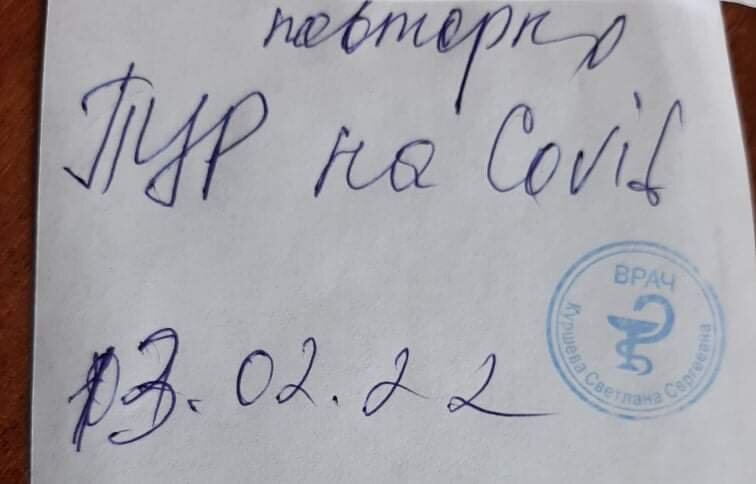 повторно
ПЦР на Covid
03.02.22
ВРАЧ
Куршева Светлана Сергеевна